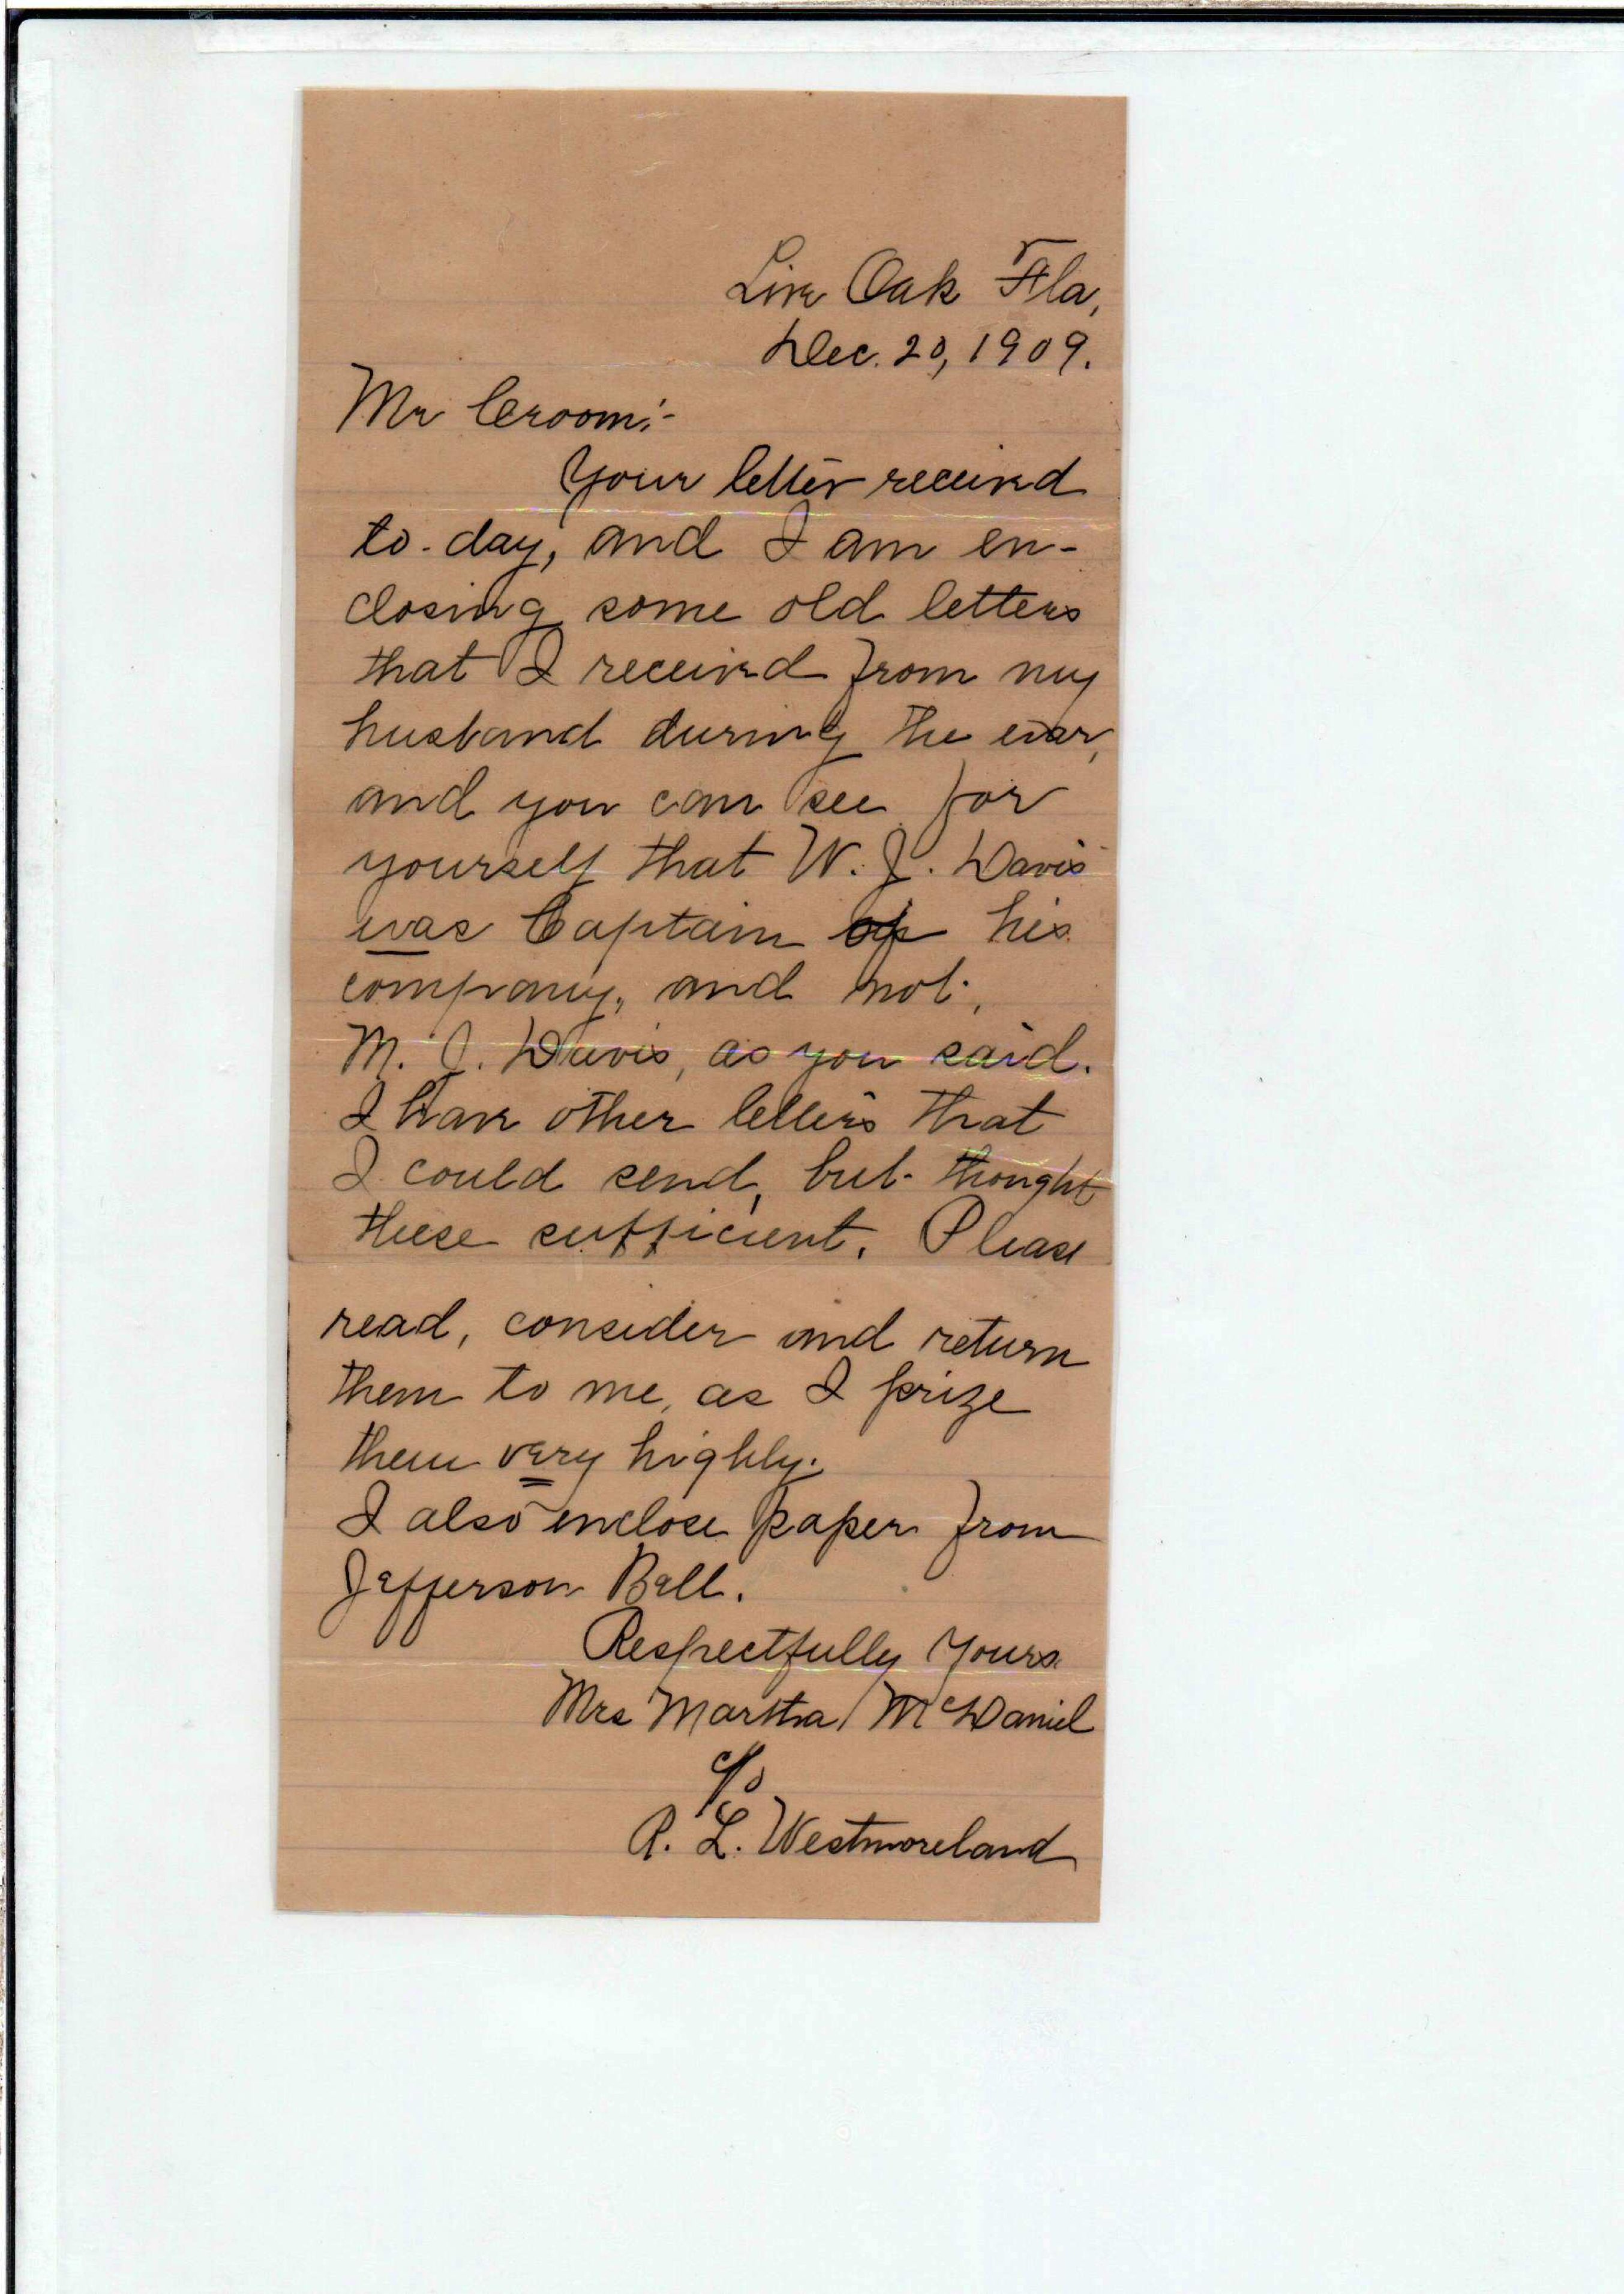 Live Oak Fla,
Dec. 20, 1909.
Mr Croom:-
Your letter received
to-day, and I am en-
closing some old letters
that I received from my
husband during the war,
and you can see for
yourself that W. J. Davis
was Captain of his
company, and not,
M. J. Davis, as you said.
I have other letters that
I could send, but thought
these sufficient. Please
read, consider and return
them to me, as I prize
them very highly.
I also enclose paper from
Jefferson Bell.
Respectfully Yours
Mrs Martha McDaniel
c/o
R. L. Westmoreland